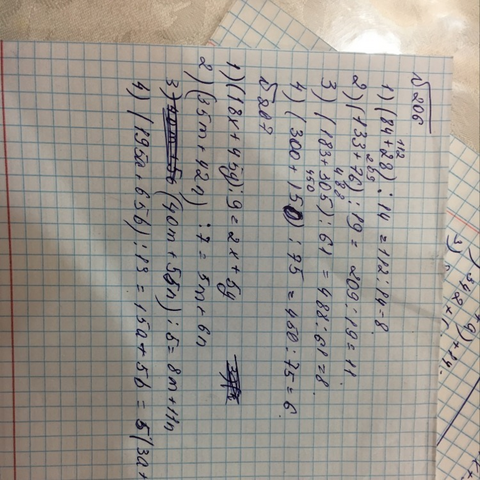 №206
1) (84+28) : 14 = 112:14=8
112
2) (133+76) : 19 = 209:19=11.
209
3) (183+305) : 61 = 488:61=8.
488
4) (300+150) : 75 = 450:75=6
450
№207
1) (18x+45y):9=2x+5y
2) (35m+42n) :7=5m+6n
3) (40m+55n):5=8m+11n
4) (195a+65b):13=15a+5b=5(3a+
3)